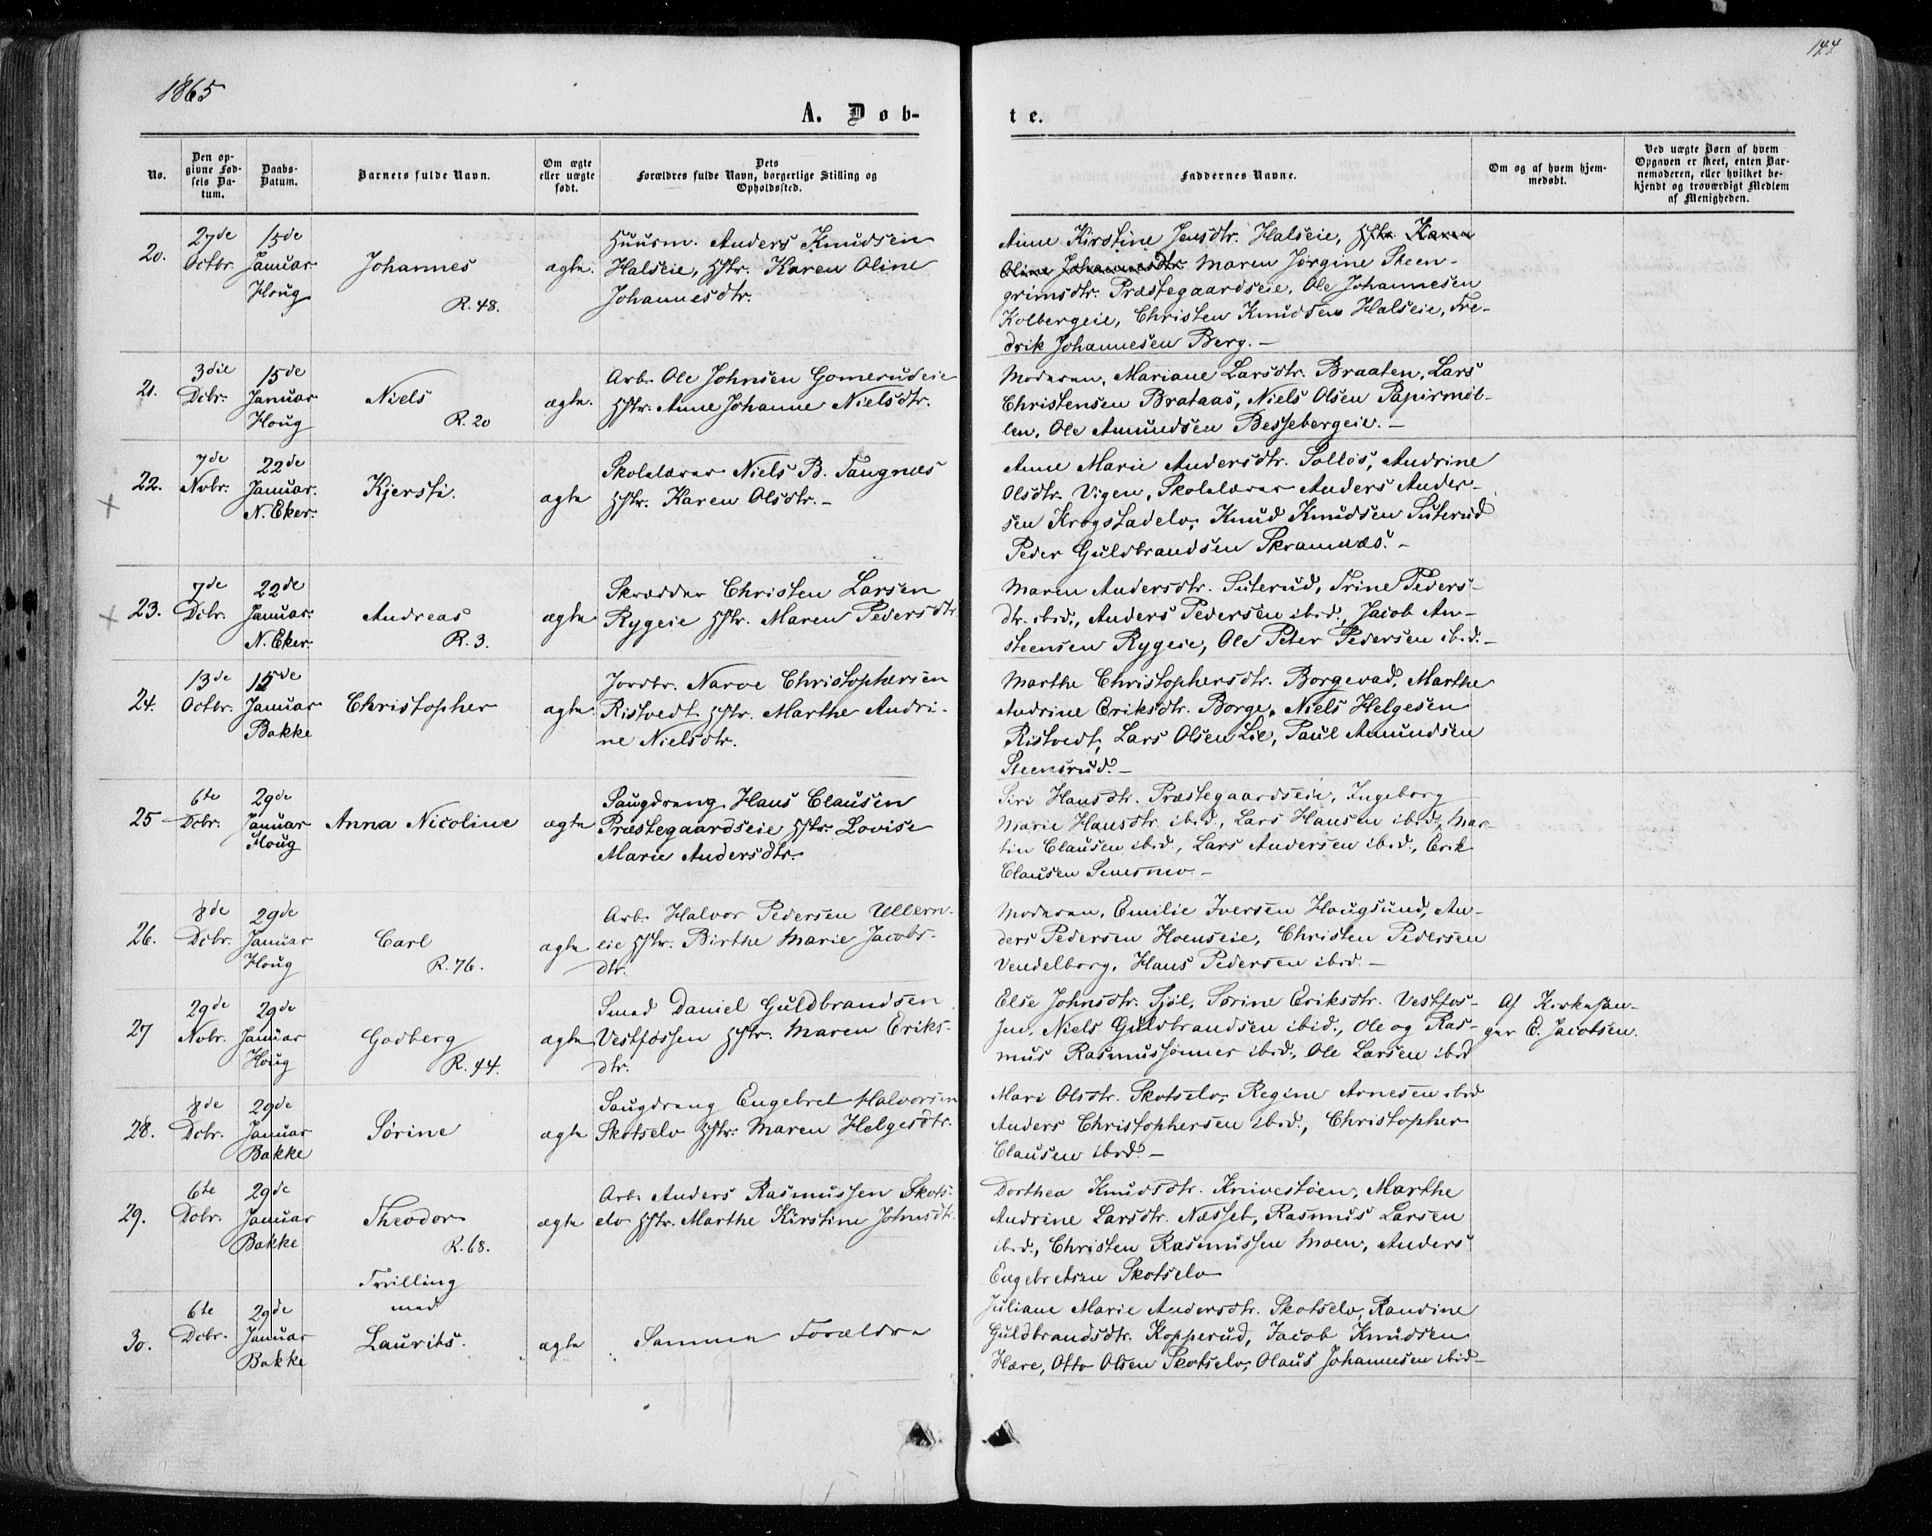 1865
144
A. Døb-
te.
No.
Den op-
givne Fød-
sels Da-
tum.
Daabs-
Datum.
Barnets fulde Navn.
Om ægte
eller uægte
født.
Dets
Forældres fulde Navn, borgerlige Stilling og
Opholdssted.
Faddernes Navne.
Om og af hvem hjem-
medøbt.
Ved uægte Børn af hvem
Opgaven er skeet, enten Bar-
nemoderen, eller hvilket be-
kjendt og troværdigt Medlem
af Menigheden.
20.
27de
Octbr.
15de
Januar
Houg
Johannes
R. 48.
ægte.
Huusm. Anders Knudsen
Halseie, Hstr. Karen Oline
Johannesdtr.
Anne Kirstine Jensdtr. Halseie, Hstr. Karen
Oline Johannesdtr. Maren Jørgine Steen-
grimsdtr. Præstegaardseie, Ole Johannesen
Kolbergeie, Christen Knudsen Halseie, Fre-
drik Johannesen Berg. –
21.
3die
Dcbr.
15de
Januar
Houg
Niels
R. 20
ægte.
Arb. Ole Johnsen Gomerudeie
Hstr. Anne Johanne Nielsdtr.
Moderen, Mariane Larsdtr. Braaten, Lars
Christensen Brataas, Niels Olsen Papirmøl-
len, Ole Amundsen Bessebergeie. –
22.
7de
Nvbr.
22de
Januar.
N. Eker.
Kjersti.
ægte
Skolelærer Niels B. Taugnæs
Hstr. Karen Olsdtr. –
Anne Marie Andersdtr. Solløs, Andrine
Olsdtr. Vigen, Skolelærer Anders Ander-
sen Krogstadelv, Knud Knudsen Suterud
Peder Guldbrandsen Skramnæs. –
23.
7de
Dcbr.
22de
Januar.
N. Eker.
Andreas
R. 3.
ægte
Skrædder Christen Larsen
Rygeie Hstr. Maren Pedersdtr.
Maren Andersdtr. Suterud, Trine Peders-
dtr. ibid., Anders Pedersen ibid., Jacob An-
steensen Rygeie, Ole Peter Pedersen ibid. –
24.
13de
Octbr.
15de
Januar
Bakke
Christopher
ægte
Jordbr. Narve Christophersen
Ristvedt Hstr. Marthe Andri-
ne Nielsdtr.
Marthe Christophersdtr. Borgevad, Marthe
Andrine Eriksdtr. Borge, Niels Helgesen
Ristvedt, Lars Olsen Lie, Paul Amundsen
Steensrud. –
25
6te
Dcbr.
29de
Januar
Houg
Anna Nicoline
ægte
Saugdreng Hans Clausen
Præstegaardseie Hstr. Lovise
Marie Andersdtr.
Siri Hansdtr. Præstegaardseie, Ingeborg
Marie Hansdtr. ibid., Lars Hansen ibid., Mar-
tin Clausen ibid., Lars Andersen ibid., Erik
Clausen Semsmo. –
26.
8de
Dcbr.
29de
Januar
Houg
Carl
R. 76.
ægte
Arb. Halvor Pedersen Ullern-
eie Hstr. Birthe Marie Jacobs-
dtr.
Moderen, Emilie Iversen Hougsund, An-
ders Pedersen Hoenseie, Christen Pedersen
Vendelborg, Hans Pedersen ibid. –
27
29de
Nvbr.
29de
Januar
Houg
Godberg
R. 44.
ægte
Smed Daniel Guldbrandsen
Vestfossen Hstr. Maren Eriks-
dtr.
Else Johnsdtr. Sjøl, Sørine Eriksdtr. Vestfos-
sen, Niels Guldbrandsen ibid., Ole og Ras-
mus Rasmussønner ibid., Ole Larsen ibid
Af Kirkesan-
ger E. Jacobsen.
28.
8de
Dcbr.
29de
Januar
Bakke
Sørine
ægte
Saugdreng Engebret Halvorsen
Skotselv Hstr. Maren Helgesdtr.
Mari Olsdtr. Skotselv, Regine Arnesen ibid
Anders Christophersen ibid., Christopher
Clausen ibid. –
29.
6te
Dcbr.
29de
Januar
Bakke
Theodor
R. 68.
ægte
Arb. Anders Rasmussen Skots-
elv Hstr. Marthe Kirstine Johnsdtr.
Dorthea Knudsdtr. Knivestøen, Marthe
Andrine Larsdtr. Næsset, Rasmus Larsen
ibid., Christen Rasmussen Moen, Anders
Engebretsen Skotselv
Tvilling
med
30.
6te
Dcbr.
29de
Januar
Bakke
Laurits.
ægte
Samme Forældre
Juliane Marie Andersdtr. Skotselv, Randine
Guldbrandsdtr. Kopperud, Jacob Knudsen
Hære, Otto Olsen Skotselv, Olaus Johannesen ibid –